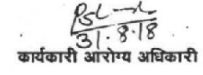 31.8.18
कार्यकारी आरोग्य अधिकारी